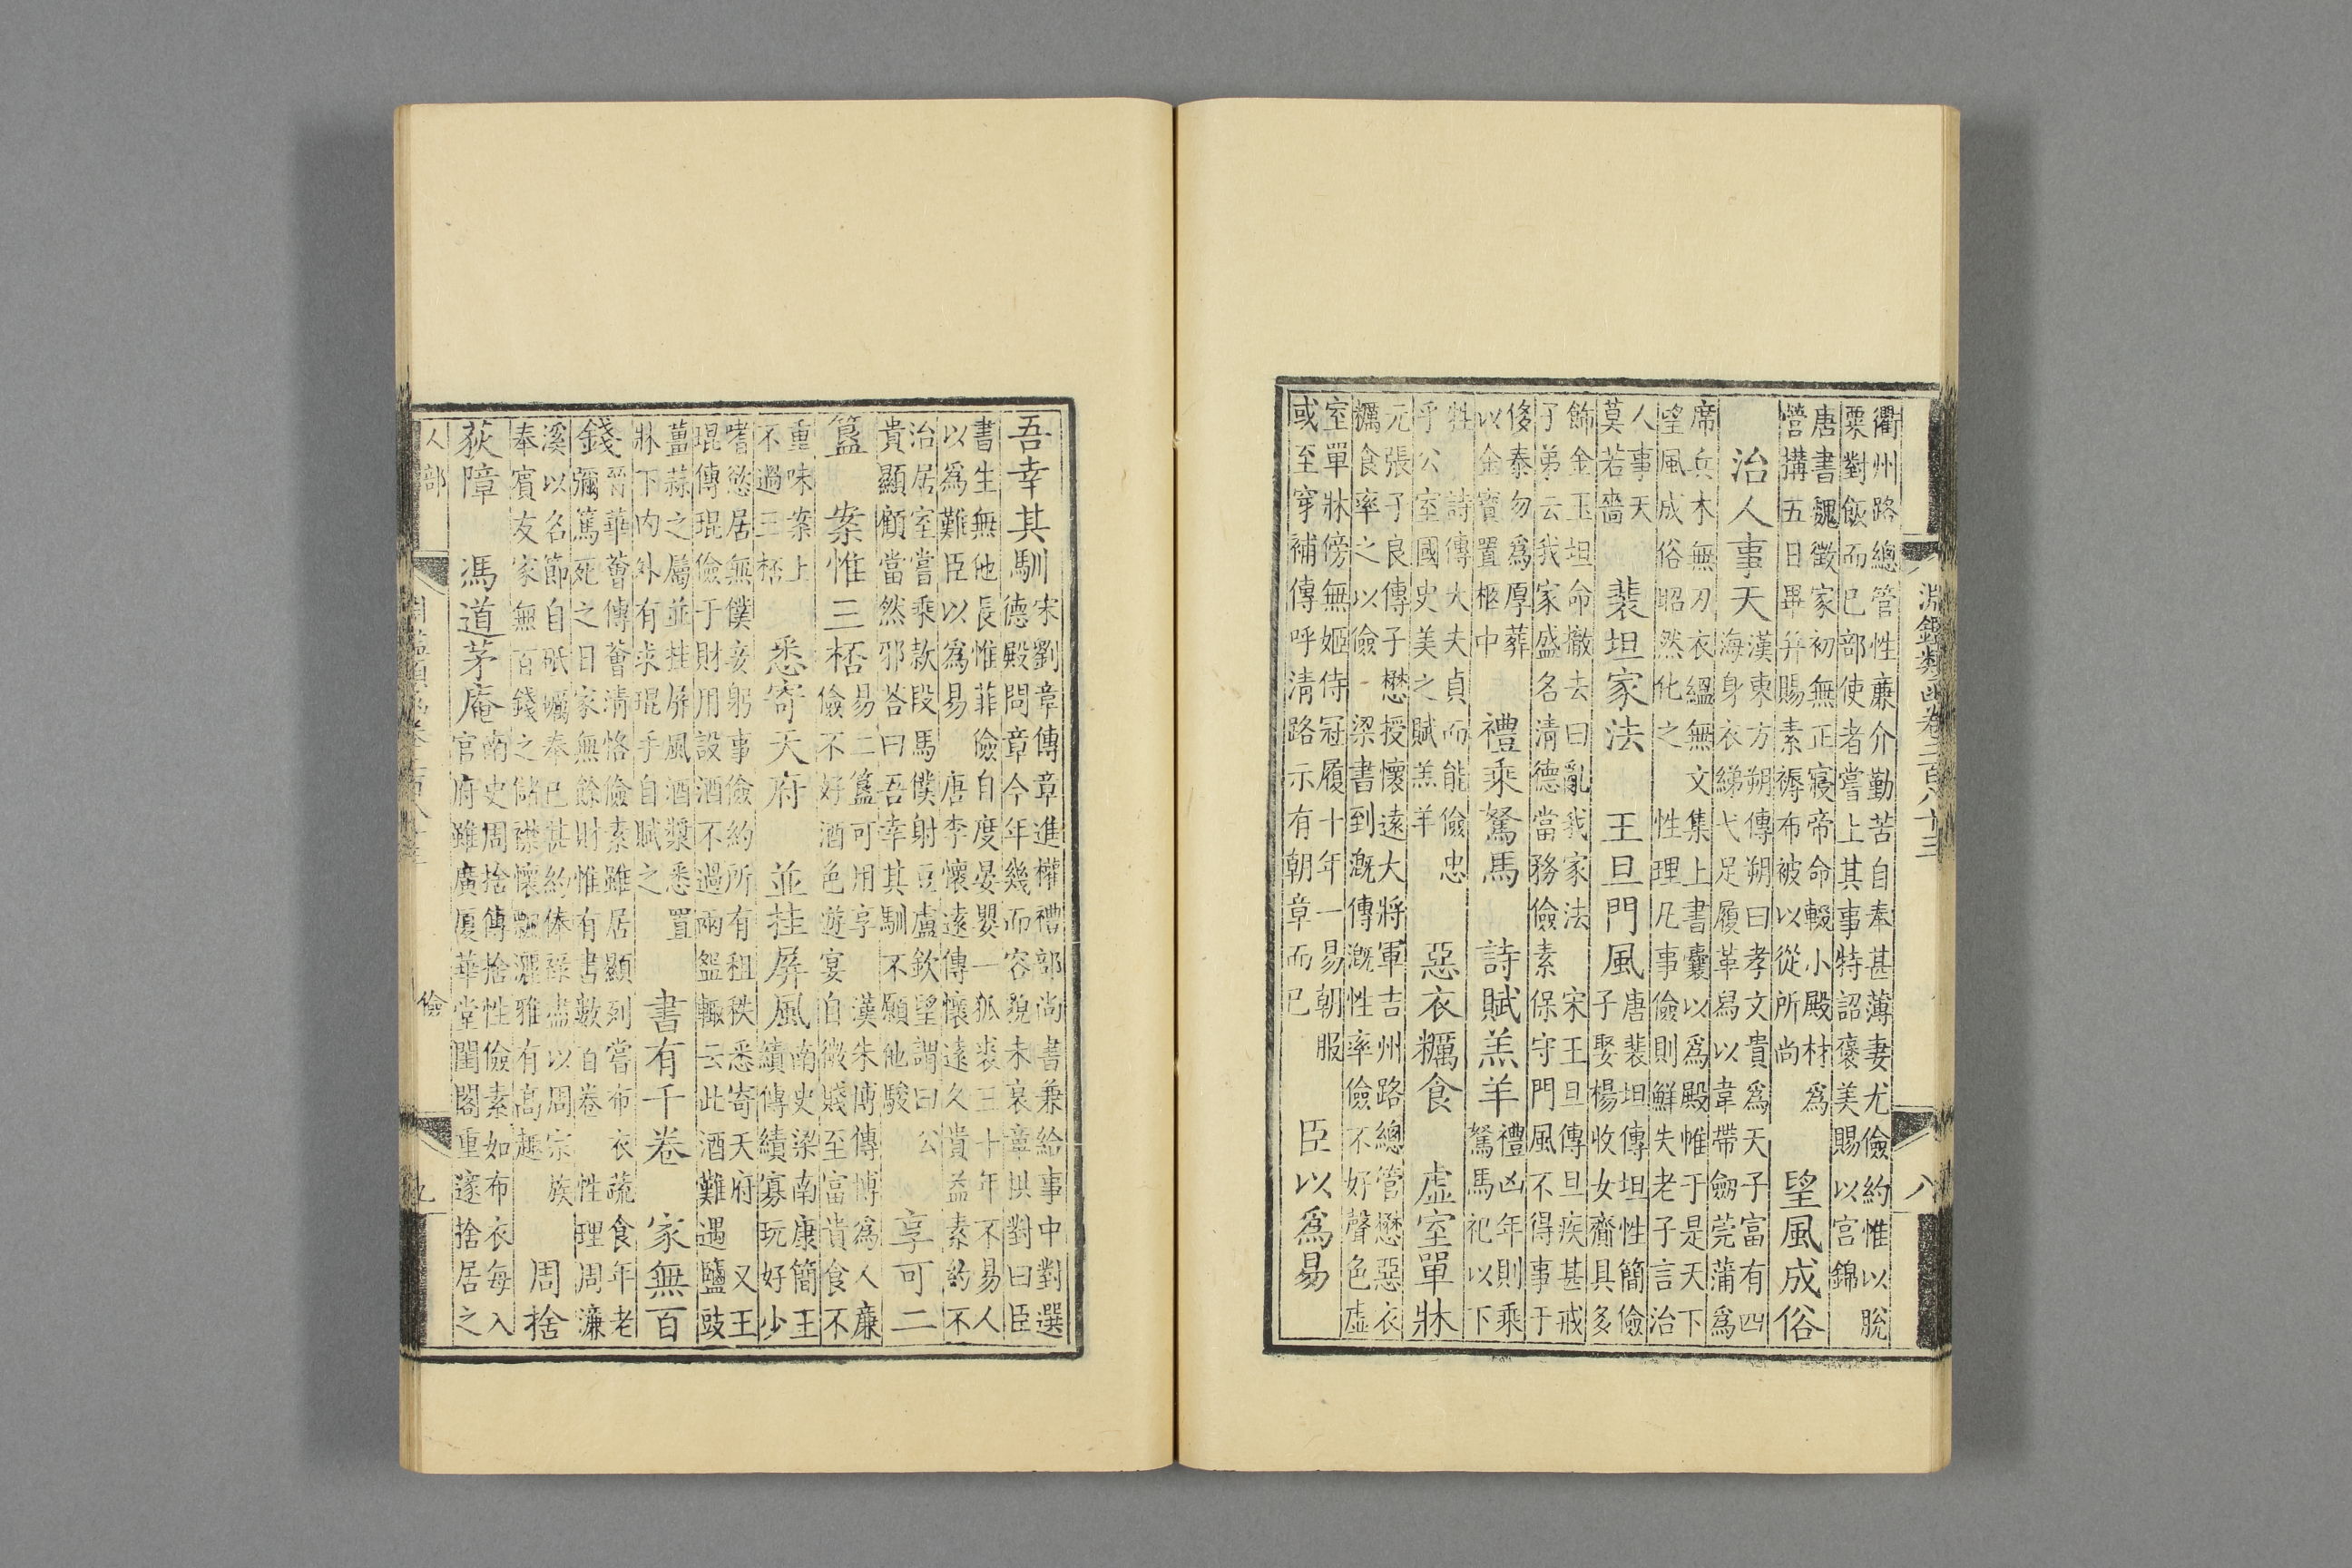 淵鑑類函卷三百八十三
八
衢州路總管性廉介勤苦自奉甚薄妻尤儉約惟以脫
粟對飯而已部使者嘗上其事特詔褒美賜以宮錦
唐書魏徵家初無正寢帝命輟小殿材為
營搆五日畢并賜素褥布被以從所尚
望風成俗
治人事天
漢東方朔傳朔曰孝文貴為天子富有四
海身衣綈弋足履革舄以韋帶劒莞蒲為
席兵木無刃衣縕無文集上書囊以為殿帷于是天下
望風成俗昭然化之　性理凡事儉則鮮失老子言治
人事天
莫若嗇
裴坦家法　王旦門風
唐裴坦傳坦性簡儉
子娶楊收女齎具多
飾金玉坦命撤去曰亂我家法　宋王旦傳旦疾甚戒
子弟云我家盛名清德當務儉素保守門風不得事于
侈泰勿為厚葬
以金寶置柩中
禮乘駑馬　詩賦羔羊
禮凶年則乘
駑馬祀以下
牲　詩傳大夫貞而能儉忠
乎公室國史美之賦羔羊
惡衣糲食　虛室單牀
元張子良傳子懋授懷遠大將軍吉州路總管懋惡衣
糲食率之以儉　梁書到溉傳溉性率儉不好聲色虛
室單牀傍無姬侍冠履十年一易朝服
或至穿補傳呼清路示有朝章而已
臣以為易
吾幸其馴
宋劉章傳章進權禮部尚書兼給事中對選
德殿問章今年幾而容貌未衰章拱對曰臣
書生無他長惟菲儉自度晏嬰一狐裘三十年不易人
以為難臣以為易　唐李懷遠傳懷遠久貴益素約不
治居室嘗乘款段馬僕射豆盧欽望謂曰公
貴顯顧當然邪答曰吾幸其馴不願他駿
享可二
簋　案惟三桮
易二簋可用享　漢朱博傳博為人廉
儉不好酒色遊宴自微賤至富貴食不
重味案上
不過三桮
悉寄天府　並挂屏風
南史梁南康簡王
績傳績寡玩好少
嗜慾居無僕妾躬事儉約所有租秩悉寄天府　又王
琨傳琨儉于財用設酒不過兩盌輒云此酒難遇鹽豉
薑蒜之屬並挂屏風酒漿悉置
牀下內外有求琨手自賦之
書有千卷　家無百
錢
晉華薈傳薈清恪儉素雖居顯列嘗布衣蔬食年老
彌篤死之日家無餘財惟有書數百卷　性理周濂
溪以名節自砥礪奉己甚約俸祿盡以周宗族
奉賓友家無百錢之儲襟懷飄灑雅有高趣
周捨
荻障　馮道茅庵
南史周捨傳捨性儉素如布衣每入
官府雖廣厦華堂閨閣重邃捨居之
人部
儉
九